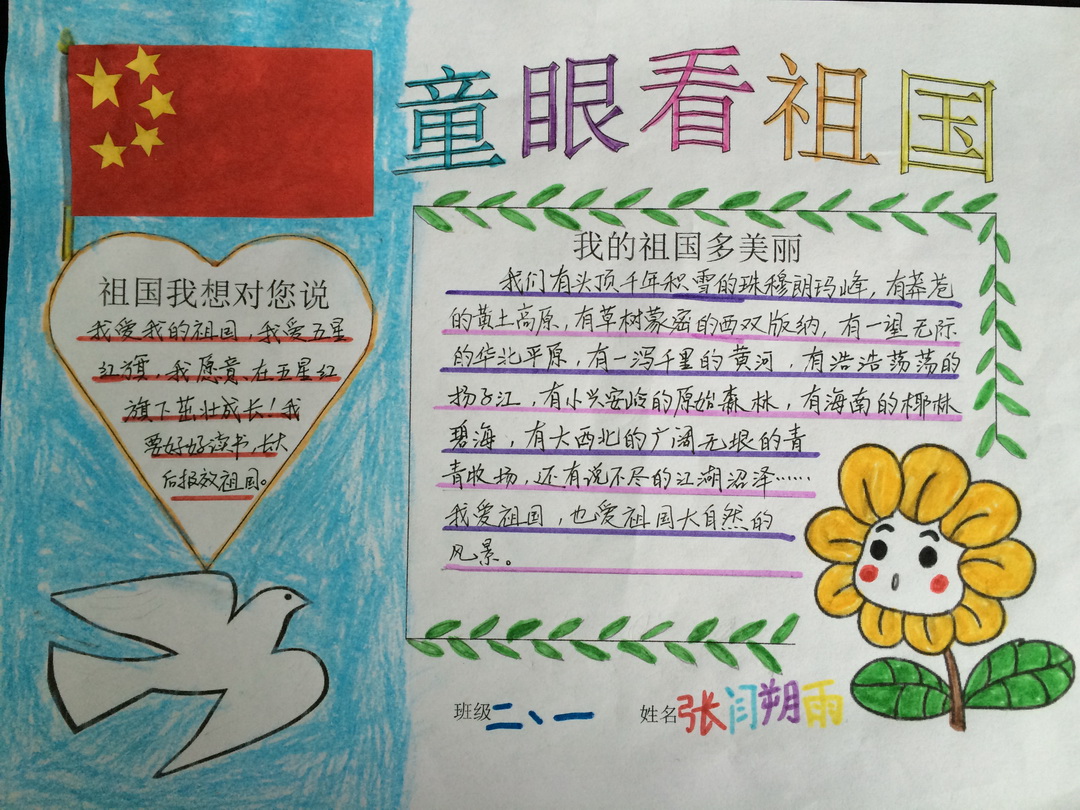 童眼看祖国
祖国我想对您说
我爱我的祖国,我爱五星
红旗,我愿意在五星红
旗下茁壮成长!我
要好好读书,长大
后报效祖国。
我的祖国多美丽
我们有头顶千年积雪的珠穆朗玛峰,有莽苍
的黄土高原,有草树蒙密的西双版纳,有一望无际
的华北平原,有一泻千里的黄河,有浩浩荡荡的
扬子江,有小兴安岭的原始森林,有海南的椰林
碧海,有大西北的广阔无垠的青
青牧场,还有说不尽的江湖沼泽……
我爱祖国,也爱祖国大自然的
风景。
班级二、一 姓名张闫朔雨